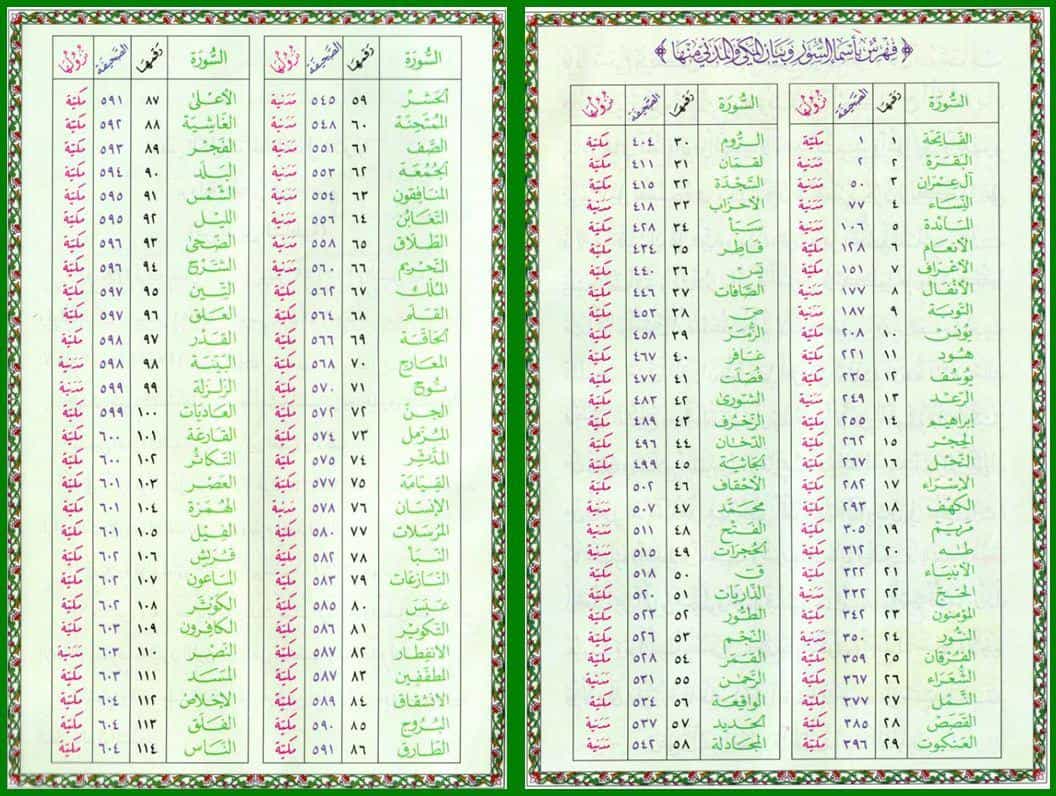 فهرس بأسماء السور وبيان المكي والمدني منها
السُّورَة رقمها الصحيفة نزولها
الفَاتِحَة ١ ١ مكيّة
البَقَرَة ٢ ٢ مدنية
آل عِمرَان ٣ ٥٠ مدنية
النِّسَاء ٤ ٧٧ مدنية
المَائدة ٥ ١٠٦ مدنية
الأنعَام ٦ ١٢٨ مكيّة
الأعرَاف ٧ ١٥١ مكيّة
الأنفَال ٨ ١٧٧ مدنية
التوبَة ٩ ١٨٧ مدنية
يُونس ١٠ ٢٠٨ مكيّة
هُود ١١ ٢٢١ مكيّة
يُوسُف ١٢ ٢٣٥ مكيّة
الرّعد ١٣ ٢٤٩ مدنية
إبراهِيم ١٤ ٢٥٥ مكيّة
الحِجر ١٥ ٢٦٢ مكيّة
النّحل ١٦ ٢٦٧ مكيّة
الإسرَاء ١٧ ٢٨٢ مكيّة
الكهف ١٨ ٢٩٣ مكيّة
مَريَم ١٩ ٣٠٥ مكيّة
طه ٢٠ ٣١٢ مكيّة
الأنبيَاء ٢١ ٣٢٢ مكيّة
الحَج ٢٢ ٣٣٢ مدنية
المؤمنون ٢٣ ٣٤٢ مكيّة
النُّور ٢٤ ٣٥٠ مدنية
الفُرقان ٢٥ ٣٥٩ مكيّة
الشُّعَرَاء ٢٦ ٣٦٧ مكيّة
النَّمل ٢٧ ٣٧٧ مكيّة
القَصَص ٢٨ ٣٨٥ مكيّة
العَنكبوت ٢٩ ٣٩٦ مكيّة
السُّورَة رقمها الصحيفة نزولها
الرُّوم ٣٠ ٤٠٤ مكيّة
لقمَان ٣١ ٤١١ مكيّة
السَّجْدَة ٣٢ ٤١٥ مكيّة
الأحزَاب ٣٣ ٤١٨ مدنية
سَبَأ ٣٤ ٤٢٨ مكيّة
فاطِر ٣٥ ٤٣٤ مكيّة
يس ٣٦ ٤٤٠ مكيّة
الصَّافات ٣٧ ٤٤٦ مكيّة
ص ٣٨ ٤٥٣ مكيّة
الزُّمَر ٣٩ ٤٥٨ مكيّة
غَافِر ٤٠ ٤٦٧ مكيّة
فُصِّلَت ٤١ ٤٧٧ مكيّة
الشورى ٤٢ ٤٨٣ مكيّة
الزخرُف ٤٣ ٤٨٩ مكيّة
الدّخَان ٤٤ ٤٩٦ مكيّة
الجاثية ٤٥ ٤٩٩ مكيّة
الأحقاف ٤٦ ٥٠٢ مكيّة
محَمَّد ٤٧ ٥٠٧ مدنية
الفَتْح ٤٨ ٥١١ مدنية
الحُجرَات ٤٩ ٥١٥ مدنية
ق ٥٠ ٥١٨ مكيّة
الذَّاريَات ٥١ ٥٢٠ مكيّة
الطُّور ٥٢ ٥٢٣ مكيّة
النّجم ٥٣ ٥٢٦ مكيّة
القَمَر ٥٤ ٥٢٨ مكيّة
الرَّحمن ٥٥ ٥٣١ مدنية
الواقعَة ٥٦ ٥٣٤ مكيّة
الحَديد ٥٧ ٥٣٧ مدنية
المجَادلة ٥٨ ٥٤٢ مدنية
السُّورَة رقمها الصحيفة نزولها
الحَشر ٥٩ ٥٤٥ مدنية
المُمتَحِنَة ٦٠ ٥٤٨ مدنية
الصَّف ٦١ ٥٥١ مدنية
الجُمُعَة ٦٢ ٥٥٣ مدنية
المنَافِقون ٦٣ ٥٥٤ مدنية
التغَابُن ٦٤ ٥٥٦ مدنية
الطَّلاق ٦٥ ٥٥٨ مدنية
التحْريم ٦٦ ٥٦٠ مدنية
المُلك ٦٧ ٥٦٢ مكيّة
القَلم ٦٨ ٥٦٤ مكيّة
الحَاقة ٦٩ ٥٦٦ مكيّة
المعَارج ٧٠ ٥٦٨ مكيّة
نُوح ٧١ ٥٧٠ مكيّة
الجنّ ٧٢ ٥٧٢ مكيّة
المُزّمل ٧٣ ٥٧٤ مكيّة
المدَّثر ٧٤ ٥٧٥ مكيّة
القِيَامَة ٧٥ ٥٧٧ مكيّة
الإنسَان ٧٦ ٥٧٨ مدنية
المُرسَلات ٧٧ ٥٨٠ مكيّة
النّبَأ ٧٨ ٥٨٢ مكيّة
النّازعَات ٧٩ ٥٨٣ مكيّة
عَبَسَ ٨٠ ٥٨٥ مكيّة
التكويْر ٨١ ٥٨٦ مكيّة
الانفِطار ٨٢ ٥٨٧ مكيّة
المطَفّفِين ٨٣ ٥٨٧ مكيّة
الانشِقاق ٨٤ ٥٨٩ مكيّة
البُروج ٨٥ ٥٩٠ مكيّة
الطّارق ٨٦ ٥٩١ مكيّة
السُّورَة رقمها الصحيفة نزولها
الأعلى ٨٧ ٥٩١ مكيّة
الغَاشِيَة ٨٨ ٥٩٢ مكيّة
الفَجْر ٨٩ ٥٩٣ مكيّة
البَلَد ٩٠ ٥٩٤ مكيّة
الشّمْس ٩١ ٥٩٥ مكيّة
الليل ٩٢ ٥٩٥ مكيّة
الضّحى ٩٣ ٥٩٦ مكيّة
الشَّرح ٩٤ ٥٩٦ مكيّة
التِّين ٩٥ ٥٩٧ مكيّة
العَلق ٩٦ ٥٩٧ مكيّة
القَدْر ٩٧ ٥٩٨ مكيّة
البَيّنَة ٩٨ ٥٩٨ مدنية
الزلزَلة ٩٩ ٥٩٩ مدنية
العَاديَات ١٠٠ ٥٩٩ مكيّة
القارعَة ١٠١ ٦٠٠ مكيّة
التكاثر ١٠٢ ٦٠٠ مكيّة
العَصْر ١٠٣ ٦٠١ مكيّة
الهُمَزة ١٠٤ ٦٠١ مكيّة
الفِيل ١٠٥ ٦٠١ مكيّة
قُرَيش ١٠٦ ٦٠٢ مكيّة
المَاعون ١٠٧ ٦٠٢ مكيّة
الكوثَر ١٠٨ ٦٠٢ مكيّة
الكافِرون ١٠٩ ٦٠٣ مكيّة
النّصر ١١٠ ٦٠٣ مدنية
المسَد ١١١ ٦٠٣ مكيّة
الإخلاص ١١٢ ٦٠٤ مكيّة
الفَلَق ١١٣ ٦٠٤ مكيّة
النَّاس ١١٤ ٦٠٤ مكيّة